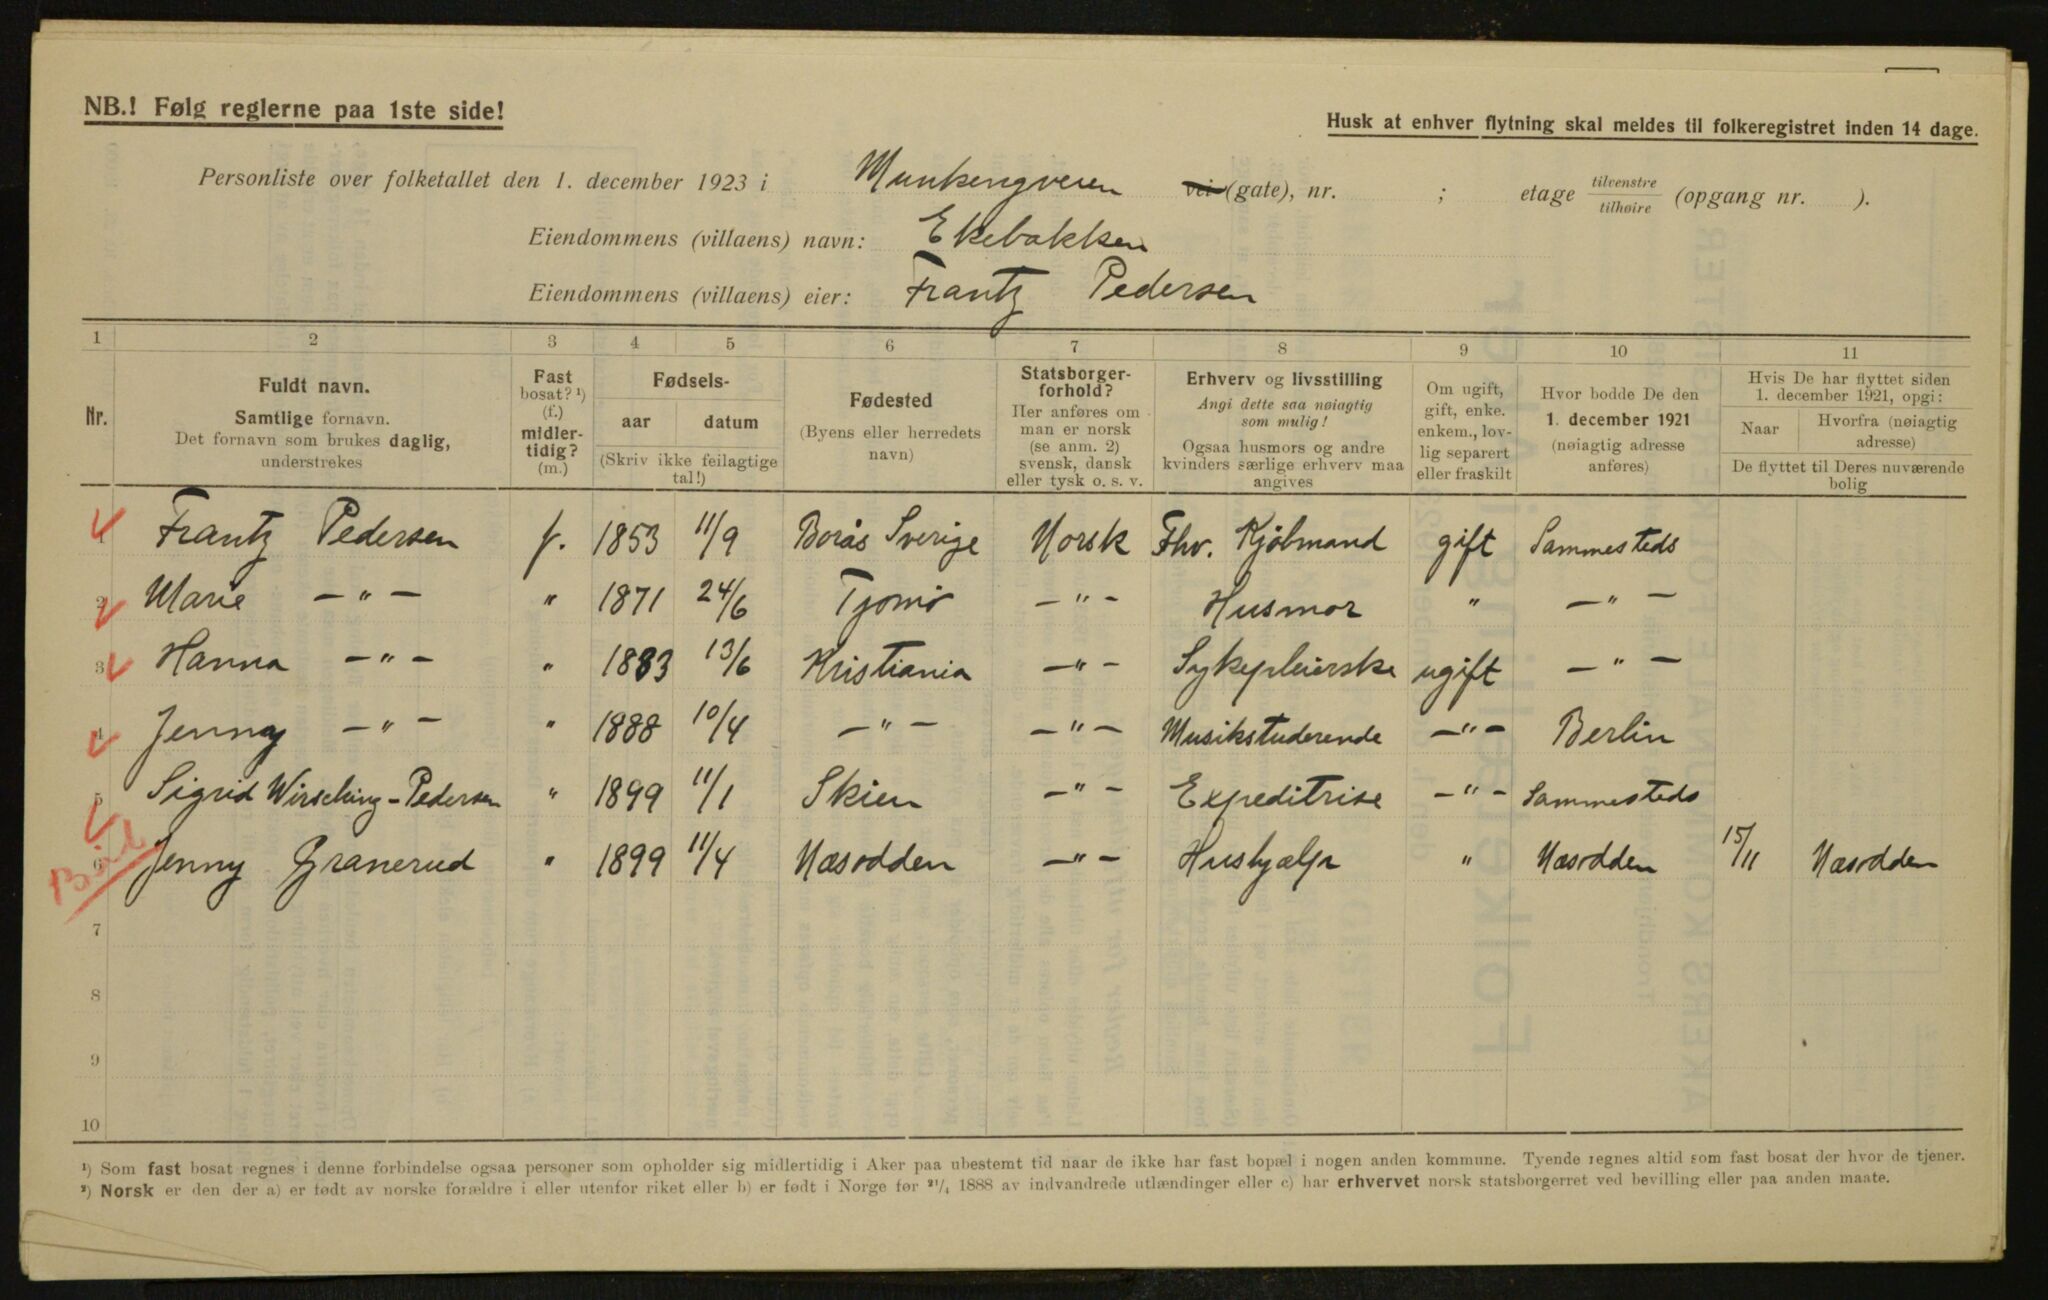 NB.! Følg reglerne paa 1ste side!
Husk at enhver flytning skal meldes til folkeregistret inden 14 dage.
Personliste over folketallet den 1. december 1923 i Munkengveien vei (gate), nr. ; etage tilvenstre/tilhøire (opgang nr. ).
Eiendommens (villaens) navn: Ekebakken
Eiendommens (villaens) eier: Frantz Pedersen
1 2 3 4 5 6 7 8 9 10 11
Nr.
Fuldt navn.
Samtlige fornavn.
Det fornavn som brukes daglig,
understrekes
Fast
bosat? ¹)
(f.)
midler-
tidig?
(m.)
Fødsels-
aar datum
(Skriv ikke feilagtige
tal!)
Fødested
(Byens eller herredets
navn)
Statsborger-
forhold?
Her anføres om
man er norsk
(se anm. 2)
svensk, dansk
eller tysk o. s. v.
Erhverv og livsstilling
Angi dette saa nøiagtig
som mulig!
Ogsaa husmors og andre
kvinders særlige erhverv maa
angives
Om ugift,
gift, enke.
enkem., lov-
lig separert
eller fraskilt
Hvor bodde De den
1. december 1921
(nøiagtig adresse
anføres)
Hvis De har flyttet siden
1. december 1921, opgi:
Naar
Hvorfra (nøiagtig
adresse)
De flyttet til Deres nuværende
bolig
1 Frantz Pedersen f. 1853 11/9 Borås Sverige Norsk Fhv. Kjøbmand gift Sammesteds
2 Marie — " — " 1871 24/6 Tjømø — " — Husmor " — " —
3 Hanna — " — " 1883 13/6 Kristiania — " — Sykepleierske ugift — " —
4 Jenny — " — " 1888 10/4 — " — — " — Musikstuderende — " — Berlin
5 Sigrid Wirsching-Pedersen " 1899 11/1 Skien — " — Expeditrise — " — Sammesteds
6 Jenny Granerud " 1899 11/4 Næsodden — " — Hushjælp " Næsodden 15/11 Næsodden
7
8
9
10
¹) Som fast bosat regnes i denne forbindelse ogsaa personer som opholder sig midlertidig i Aker paa ubestemt tid naar de ikke har fast bopæl i nogen anden kommune. Tyende regnes altid som fast bosat der hvor de tjener.
²) Norsk er den der a) er født av norske forældre i eller utenfor riket eller b) er født i Norge før ²¹/₄ 1888 av indvandrede utlændinger eller c) har erhvervet norsk statsborgerret ved bevilling eller paa anden maate.